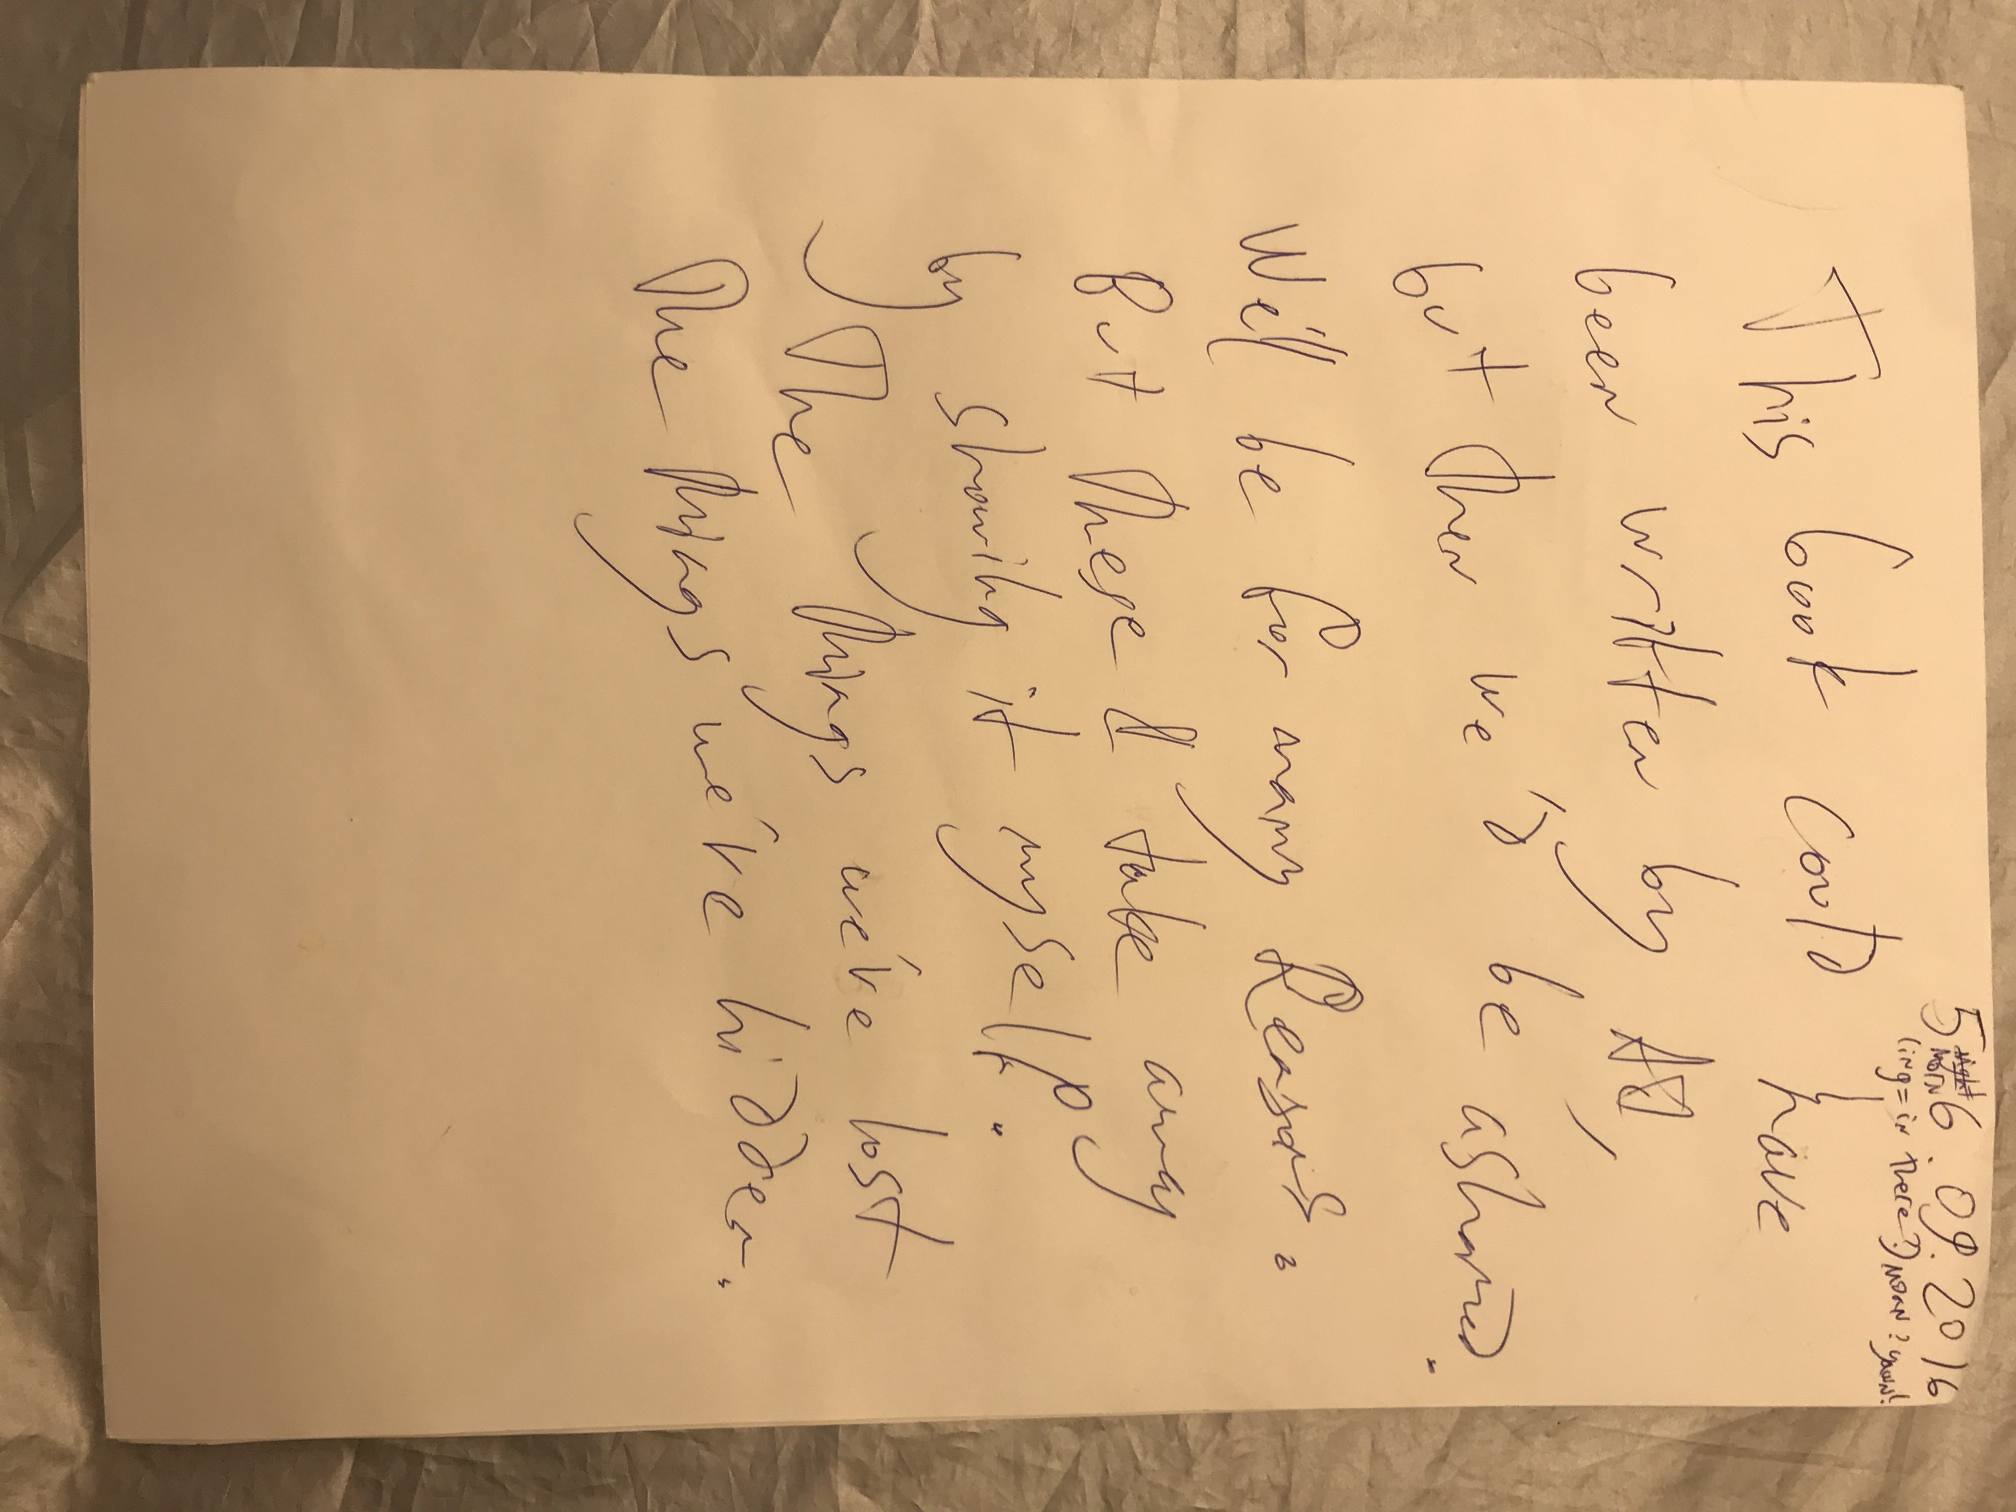 5 6.09.2016
MORN
(ing = in there?) MORN? yawn!
This book could have
been written by AD,
but then we'd be ashamed.
We'll be for many Reasons.
But these I'll take away
by showing it myself.
The things we've lost
The things we've hidden.